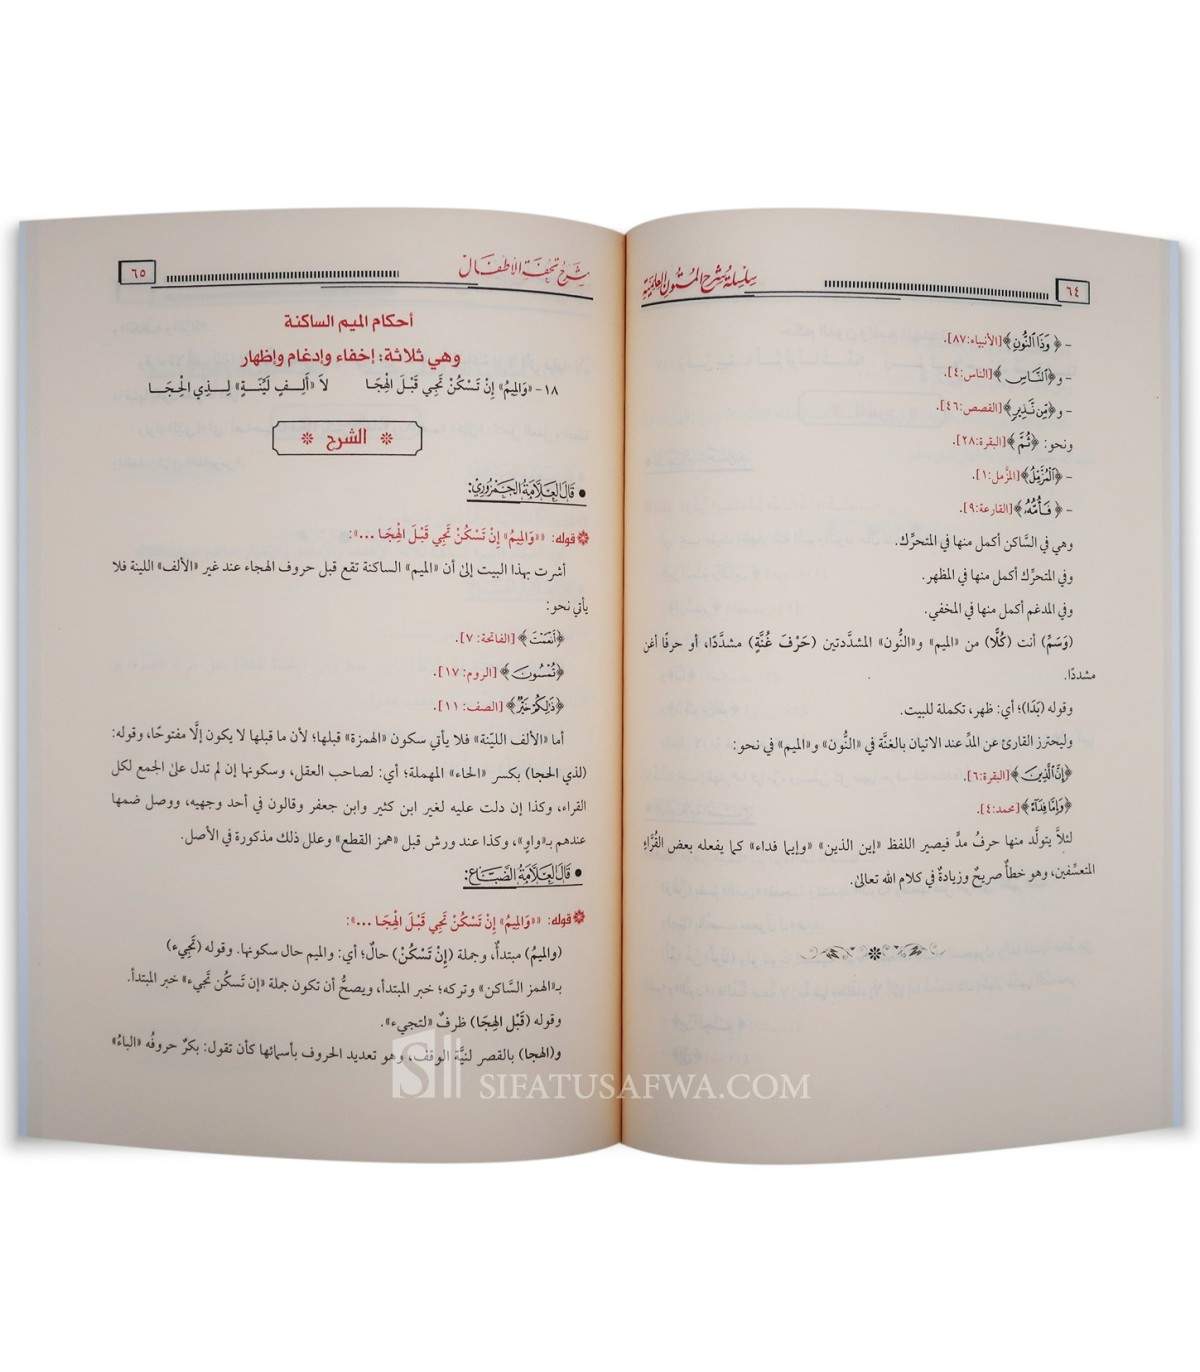 سلسلة شرح المتون العلمية
٦٤
- ﴿وَذَا ٱلنُّونِ﴾ [الأنبياء: ٨٧].
- و﴿ٱلنَّاسِ﴾ [الناس: ٤].
- و﴿مِّن نَّذِيرٍ﴾ [القصص: ٤٦].
ونحو: ﴿ثُمَّ﴾ [البقرة: ٢٨].
- ﴿ٱلْمُزَّمِّلُ﴾ [المزَّمل: ١].
- ﴿فَأُمُّهُۥ﴾ [القارعة: ٩].
وهي في السَّاكن أكمل منها في المتحرِّك.
وفي المتحرِّك أكمل منها في المظهر.
وفي المدغم أكمل منها في المخفي.
(وَسَمِّ) أنت (كُلًّا) من «الميم» و«النُّون» المشدَّدتين (حَرْفَ غُنَّةٍ) مشدَّدًا، أو حرفًا أغن
مشددًا.
وقوله (بَدَا)؛ أي: ظهر، تكملة للبيت.
وليحترز القارئ عن المدِّ عند الاتيان بالغنَّة في «النُّون» و«الميم» في نحو:
﴿إِنَّ ٱلَّذِينَ﴾ [البقرة: ٦].
﴿وَإِمَّا فِدَآءً﴾ [محمد: ٤].
لئلاَّ يتولَّد منها حرفُ مدٍّ فيصير اللفظ «إين الذين» «وإيما فداء» كما يفعله بعض القُرَّاءِ
المتعسِّفين، وهو خطأٌ صريحٌ وزيادةٌ في كلام الله تعالىٰ.
شرح تحفة الأطفال
٦٥
أحكام الميم الساكنة
وهي ثلاثة: إخفاء وإدغام وإظهار
١٨- «وَالمِيمُ» إِنْ تَسْكُنْ تَجِي قَبْلَ الْهِجَا لاَ «أَلِفٍ لَيِّنَةٍ» لِذِي الْحِجَا
الشرح
• قَالَ العَلَّامَةُ الجَمْزُورِيُّ:
قوله: ««وَالمِيمُ» إِنْ تَسْكُنْ تَجِي قَبْلَ الْهِجَا ...»:
أشرت بهذا البيت إلىٰ أن «الميم» الساكنة تقع قبل حروف الهجاء عند غير «الألف» اللينة فلا
يأتي نحو:
﴿أَنْعَمْتَ﴾ [الفاتحة: ٧].
﴿تُمْسُونَ﴾ [الروم: ١٧].
﴿ذَٰلِكُمْ خَيْرٌ﴾ [الصف: ١١].
أما «الألف الليِّنة» فلا يأتي سكون «الهمزة» قبلها؛ لأن ما قبلها لا يكون إلَّا مفتوحًا، وقوله:
(لذي الحجا) بكسر «الحاء» المهملة؛ أي: لصاحب العقل، وسكونها إن لم تدل علىٰ الجمع لكل
القراء، وكذا إن دلت عليه لغير ابن كثير وابن جعفر وقالون في أحد وجهيه، ووصل ضمها
عندهم بـ«واو»، وكذا عند ورش قبل «همز القطع» وعلل ذلك مذكورة في الأصل.
• قَالَ العَلَّامَةُ الضَّبَّاعُ:
قوله: ««وَالمِيمُ» إِنْ تَسْكُنْ تَجِي قَبْلَ الْهِجَا ...»:
(والميمُ) مبتدأٌ، وجملة (إِنْ تَسْكُنْ) حالٌ؛ أي: والميم حال سكونها. وقوله (تَجِيء)
بـ«الهمز السَّاكن» وتركه؛ خبر المبتدأ، ويصحُّ أن تكون جملة «إن تَسكُن تَجيء» خبر المبتدأ.
وقوله (قَبْل الهِجَا) ظرفٌ «لتجيء».
و(الهجا) بالقصر لنيَّة الوقف، وهو تعديد الحروف بأسمائها كأن تقول: بكرٌ حروفُه «الباءُ»
SIFATUSAFWA.COM